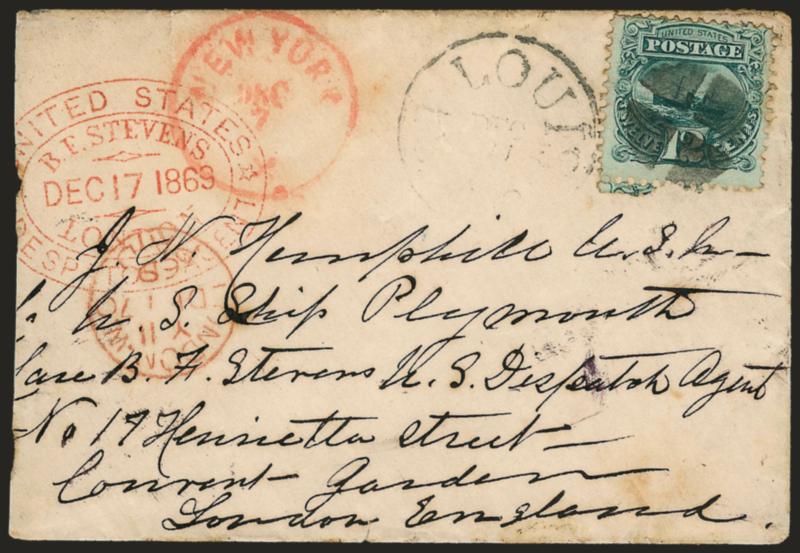 NEW YORK
DEC
7
LOUI
DEC
UNITED STATES
B.F. STEVENS
DEC 17 1869
LONDON
UNITED STATES
POSTAGE
12
CENTS
J. N. Hemphill U.S.N—
U. S. Ship Plymouth
Care B. F. Stevens U. S. Despatch Agent
No 17 Henrietta Street—
Convent Garden
London England.